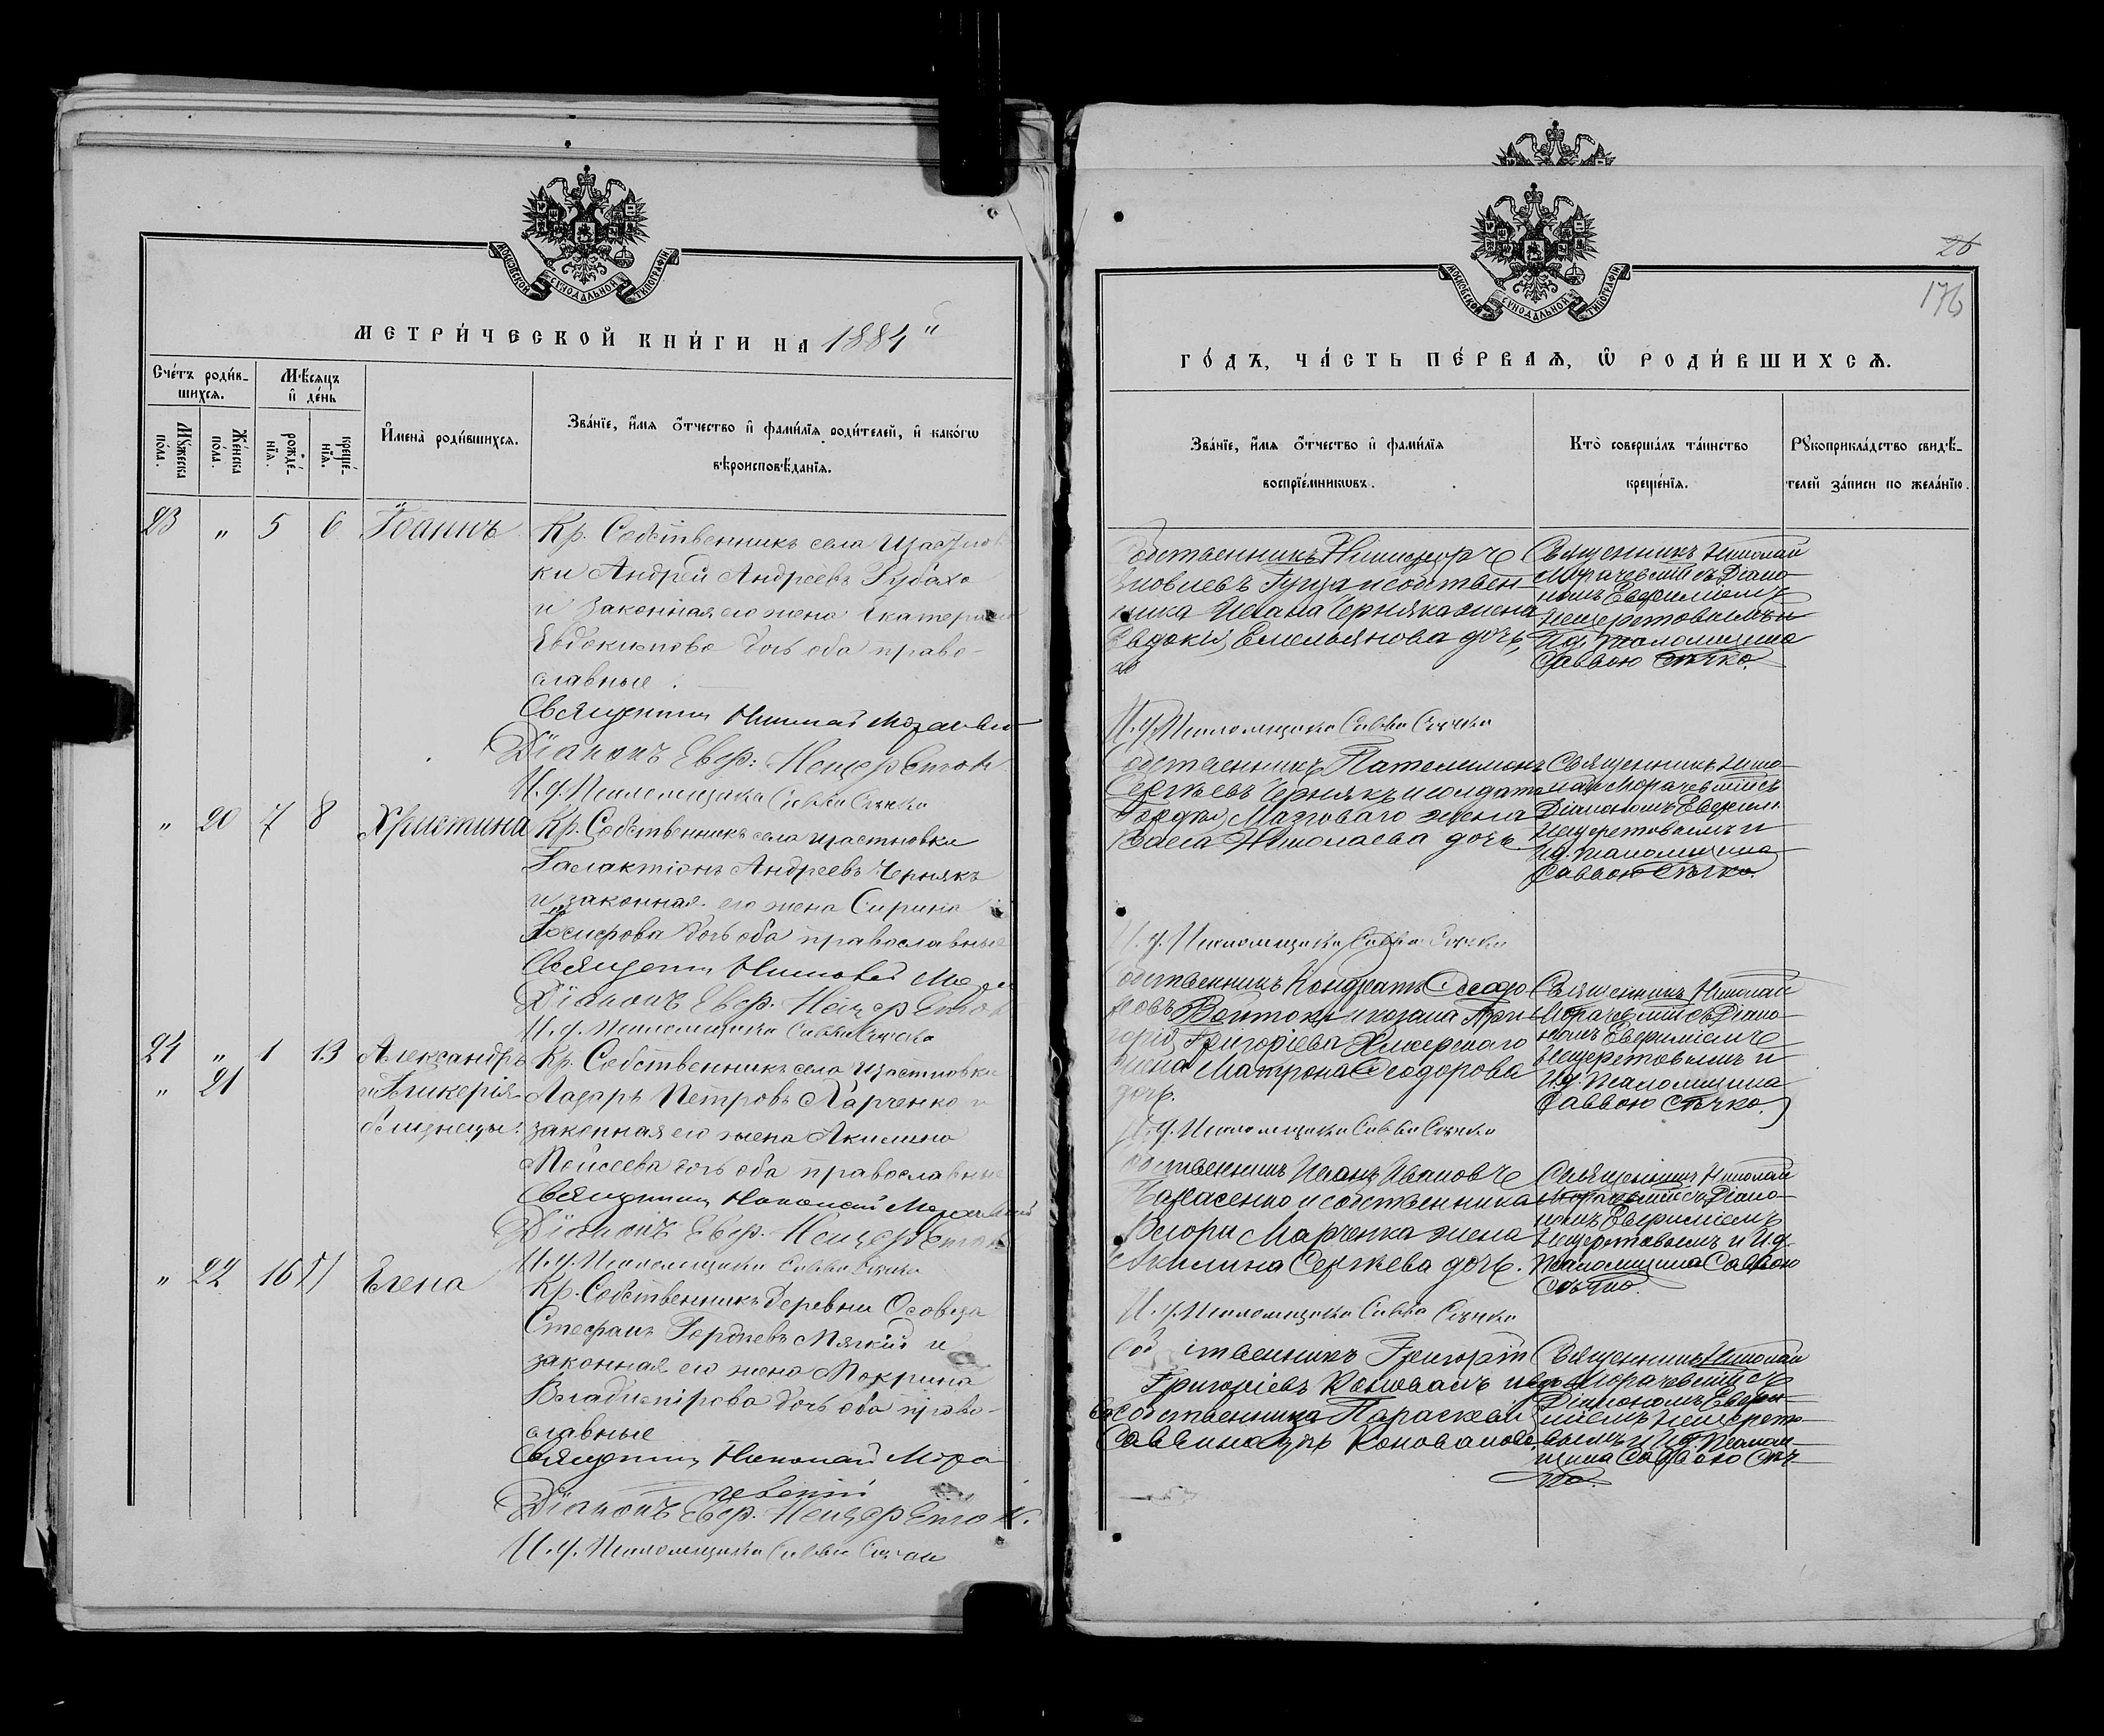 МОСКОВСКОЙ СѴНОДАЛЬНОЙ ТИПОГРАФІИ
МЕТРИ́ЧЕСКОЙ КНИ́ГИ НА 1884
Сче́тъ роди́в-
шихсѧ.
Мѣ́сяцъ
и҆ де́нь
Мꙋ́жеска
по́ла.
Же́нска
по́ла.
рожде́-
нїѧ.
креще́-
нїѧ.
И҆мена̀ роди́вшихсѧ.
Зва́нїе, и҆́мѧ ѻ҆́тчество и҆ фами́лїѧ роди́телей, и҆ како́гѡ
вѣроисповѣ́данїѧ.
23 " 5 6 Іоаннъ
Кр. Собственникъ села Щастнов
ки Андрей Андреевъ Рубахо
и законная его жена Екатерина
Евдокимова дочь оба право-
славные.
Священник Николай Морачевск
Діаконъ Евф: Нещеретов
И. д. Псаломщика Савва Сѣчко
" 20 7 8 Христина
Кр. Собственникъ села Щастновки
Галактіонъ Андреевъ Чернякъ
и законная его жена Сирина
Іосифова дочь оба православные
Священник Николай Мор
Діаконъ Евф. Нещеретов
И. д. Псаломщика Савва Сѣчко
24 " 1 13 Александръ
" 21 и Гликерія
близнецы.
Кр. Собственникъ села Щастновки
Лазарь Петровъ Харченко и
законная его жена Акилина
Моисеева дочь оба православные
Священник Николай Морачевский
Діаконъ Евф. Нещеретов
И. д. Псаломщика Савва Сѣчко
" 22 16 17 Елена
Кр. Собственникъ деревни Осовеца
Стефанъ Гордіевъ Мягкій и
законная его жена Мокрина
дочь оба право-
славные
Священник Николай Мора
чевскій
Діаконъ Евф. Нещеретов.
И. д. Псаломщика Савва Сѣчко
МОСКОВСКОЙ СѴНОДАЛЬНОЙ ТИПОГРАФІИ
26
176
ГО́ДЪ, ЧА́СТЬ ПЕ́РВАѦ, Ѡ҆ РОДИ́ВШИХСѦ.
Зва́нїе, и҆́мѧ ѻ҆́тчество и҆ фами́лїѧ
воспрїе́мникѡвъ.
Кто̀ соверша́лъ та́инство
креще́нїѧ.
Рꙋкоприкла́дство свидѣ́-
телей за́писи по жела́нїю.
Собственникъ Никифоръ
Яковлевъ Гуща и собствен-
ника Ивана Черняка жена
Евдокія Емельянова дочь,
Священникъ Николай
Морачевскій съ Діако-
номъ Евфиміемъ
Нещеретовымъ и
И.д. псаломщика
Саввою Сѣчко.
И. д. Псаломщика Савва Сѣчко
Собственникъ Пателимонъ
Сергѣевъ Чернякъ и солдата
жена
Васса Николаева дочь
Священникъ Нико-
лай Морачевскій съ
Діакономъ Евфим.
Нещеретовымъ и
И.д. псаломщика
Саввою Сѣчко.
И. д. Псаломщика Савва Сѣчко
Собственникъ Кондратъ Ѳеодо
ровъ и козака Гри-
горія Григоріева
жена Матрона Ѳеодорова
дочь.
Священникъ Николай
Морачевскій съ Діако-
номъ Евфиміемъ
Нещеретовымъ и
И.д. псаломщика
Саввою Сѣчко.
И. д. Псаломщика Савва Сѣчко
Собственникъ Иванъ Ивановъ
Тарасенко и собственника
Марченка жена
Акилина Сергѣева дочь.
Священникъ Николай
Морачевскій съ Діако-
номъ Евфиміемъ
Нещеретовымъ и И.д.
псаломщика Саввою
Сѣчко.
И. д. Псаломщика Савва Сѣчко
Собственникъ Григорій
Григоріевъ Коновалъ и
собственника Параскева
Саввина дочь Коновалова.
Священникъ Николай
Морачевскій съ
Діакономъ Евфи-
міемъ Нещерето-
вымъ и И.д. псалом-
щика Саввою Сѣч-
ко.